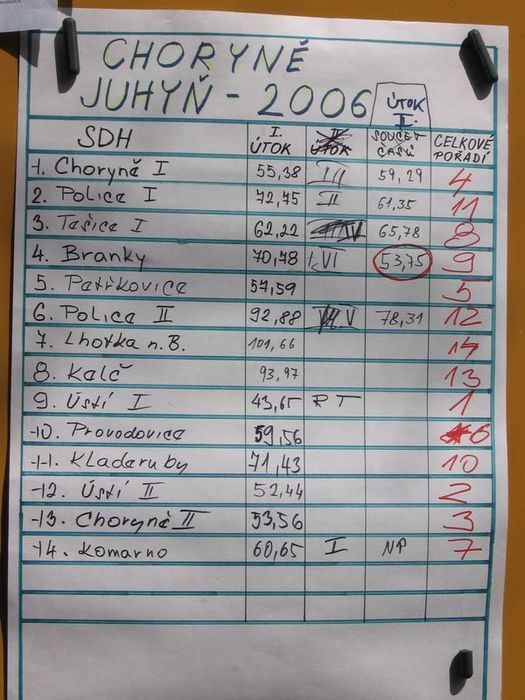 CHORYNĚ
JUHYŇ - 2006
SDH I. ÚTOK II. ÚTOK SOUČET ČASŮ ÚTOK II. CELKOVÉ POŘADÍ
1. Choryně I 55,38 III 59,29 4
2. Police I 72,75 II 61,35 11
3. Tešice I 62,22 IV 65,78 8
4. Branky 70,78 VI 53,75 9
5. Petřkovice 57,59 5
6. Police II 92,88 V 78,31 12
7. Lhotka n.B. 101,66 14
8. Kalč 93,97 13
9. Ústí I 43,65 RT 1
10. Provodovice 59,56 6
11. Kladeruby 71,43 10
12. Ústí II 52,44 2
13. Choryně II 53,56 3
14. Komarno 60,65 I NP 7